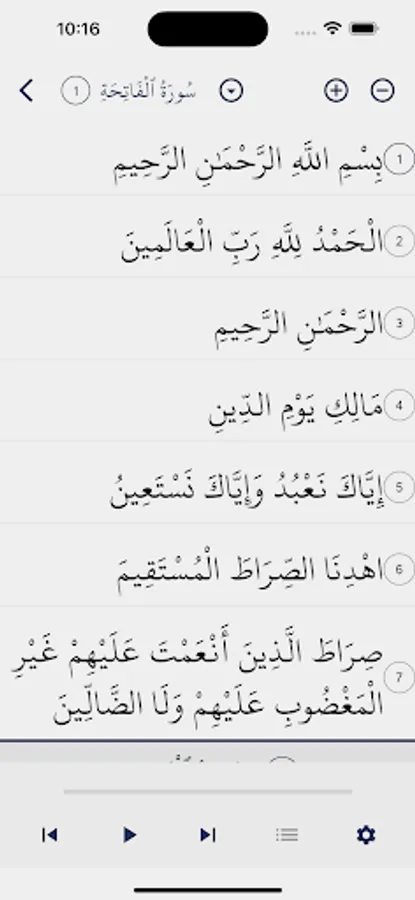 10:16
سُورَةُ ٱلْفَاتِحَةِ 1
بِسْمِ اللَّهِ الرَّحْمَٰنِ الرَّحِيمِ 1
الْحَمْدُ لِلَّهِ رَبِّ الْعَالَمِينَ 2
الرَّحْمَٰنِ الرَّحِيمِ 3
مَالِكِ يَوْمِ الدِّينِ 4
إِيَّاكَ نَعْبُدُ وَإِيَّاكَ نَسْتَعِينُ 5
اهْدِنَا الصِّرَاطَ الْمُسْتَقِيمَ 6
صِرَاطَ الَّذِينَ أَنْعَمْتَ عَلَيْهِمْ غَيْرِ
الْمَغْضُوبِ عَلَيْهِمْ وَلَا الضَّالِّينَ 7